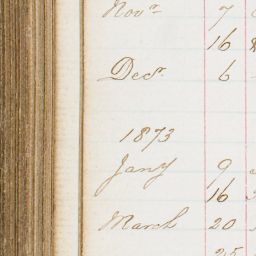 Novr 7
16
Decr 6
1873
Jany 9
16
March 20
25